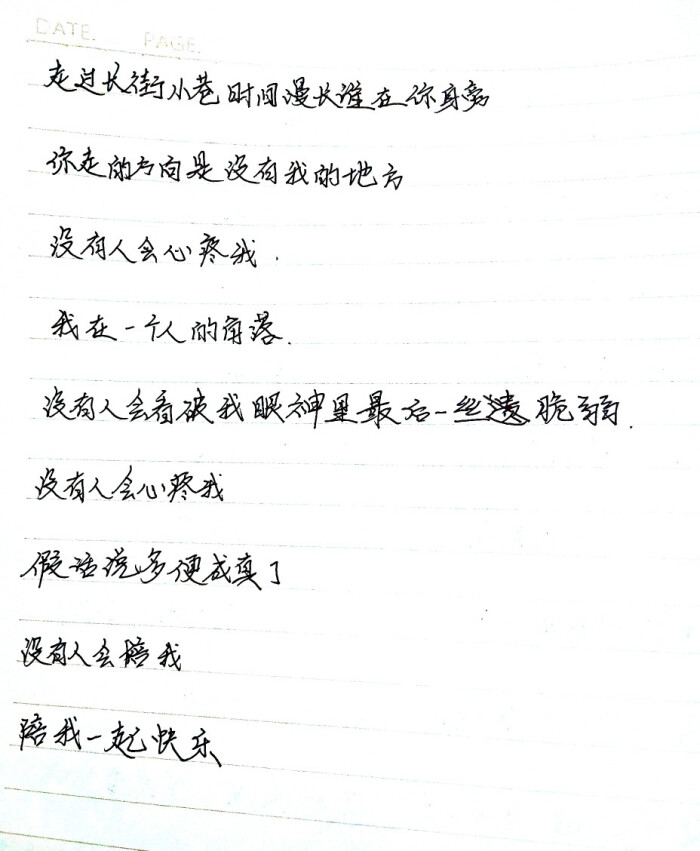 DATE. PAGE.
走过长街小巷时间漫长谁在你身旁
你走的方向是没有我的地方
没有人会心疼我.
我在一个人的角落.
没有人会看破我眼神里最后一丝脆弱.
没有人会心疼我
假话说多便成真了
没有人会陪我
陪我一起快乐